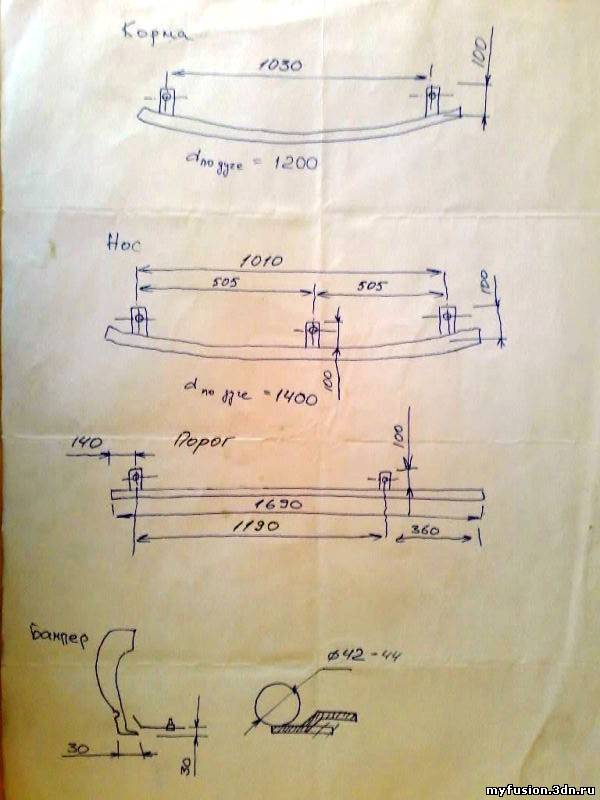 Корма
1030
100
d по дуге = 1200
Нос
1010
505 505
100
100
d по дуге = 1400
140 Порог
100
1690
1190 360
Бампер
ϕ42-44
30
30
myfusion.3dn.ru